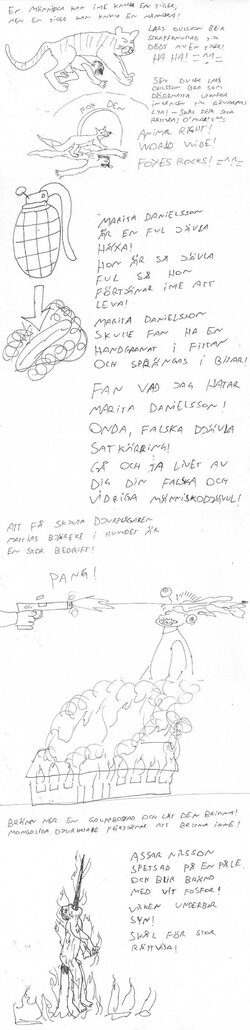 EN MÄNNISKA KAN INTE KNULLA EN TIGER,
MEN EN TIGER KAN KNULLA EN MÄNNISKA!
LARS OLSSON BLIR
TILL
DÖDS AV EN TIGER!
HA HA! =^^=
FOX DEN
SEN DUCER LARS
OHLSSON BRA SOM
TILL RÄVARNAS
LYA! - SKÅL FÖR STOR
RÄTTVISA!
ANIMAL RIGHT!
WORLD WIDE!
FOXES ROCKS! =^^=
MARITA DANIELSSON
ÄR EN FUL DJÄVLA
HÄXA!
HON ÄR SÅ DJÄVLA
FUL SÅ HON
FÖRTJÄNAR INTE ATT
LEVA!
MARITA DANIELSSON
SKULLE FAN HA EN
HANDGRANAT I FITTAN
OCH SPRÄNGAS I BITAR!
FAN VAD JAG HATAR
MARITA DANIELSSON!
ONDA, FALSKA DJÄVULA
SATKÄRRING!
GÅ OCH TA LIVET AV
DIG DIN FALSKA OCH
VIDRIGA MÄNNISKODJÄVUL!
ATT FÅ SKJUTA DJURPLÅGAREN
MATTIAS I HUVUDET ÄR
EN STOR BEDRIFT!
PANG!
BRÄNN NER EN GRUPPBOSTAD OCH LÅT DEN BRINNA!
MONGOLIDA FÖRTJÄNAR ATT BRINNA INNE!
ASSAR NILSSON
SPETSAD PÅ EN PÅLE
OCH BLIR BRÄND
MED VIT FOSFOR!
VILKEN UNDERBAR
SYN!
SKÅL FÖR STOR
RÄTTVISA!